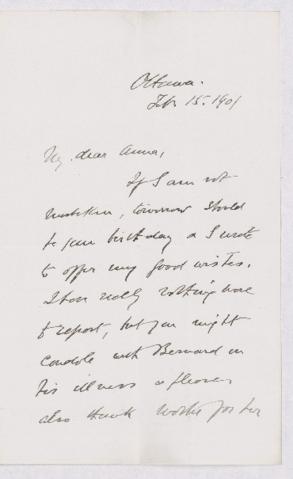 Ottawa.
Feb 15. 1901
My dear Anna,
If I am not
mistaken, tomorrow should
be your birthday & I write
to offer my good wishes.
I have really nothing more
to report, but you might
condole with Bernard on
his illness &
also thank for her